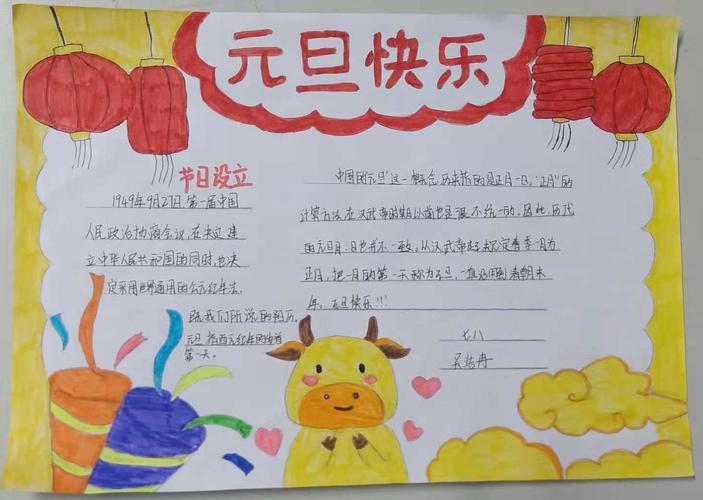 元旦快乐
节日设立
1949年9月27日,第一届中国
人民政治协商会议,在决定建
立中华人民共和国的同时,也决
定采用世界通用的公元纪年法,
既我们所说的阳历。
元旦指西元纪年的岁首
第一天。
中国的"元旦"这一概念历来指的是正月一日。"正月"的
计算方法,在汉武帝时期以前也是很不统一的。因此,历代
的元旦月、日也并不一致。从汉武帝起,规定春季一月为
正月,把一月的第一天称为元旦,一直沿用到清朝末
年。元旦快乐!!!
七八